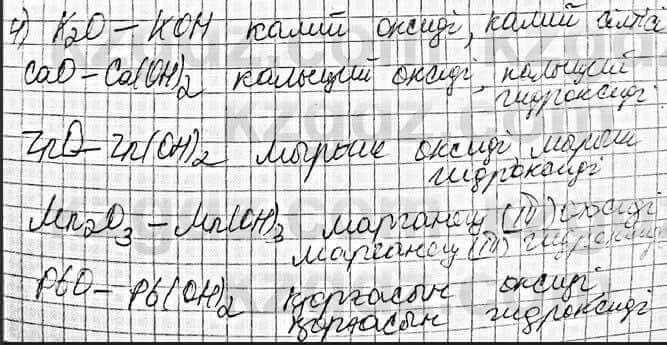 4) K₂O – KOH калий оксиді, калий сілтісі
CaO – Ca(OH)₂ кальций оксиді, кальций
гидроксиді
ZnO – Zn(OH)₂ мырыш оксиді, мырыш
гидроксиді
Mn₂O₃ – Mn(OH)₃ марганец (III) оксиді
марганец (III) гидроксиді
PbO – Pb(OH)₂ қорғасын оксиді,
қорғасын гидроксиді